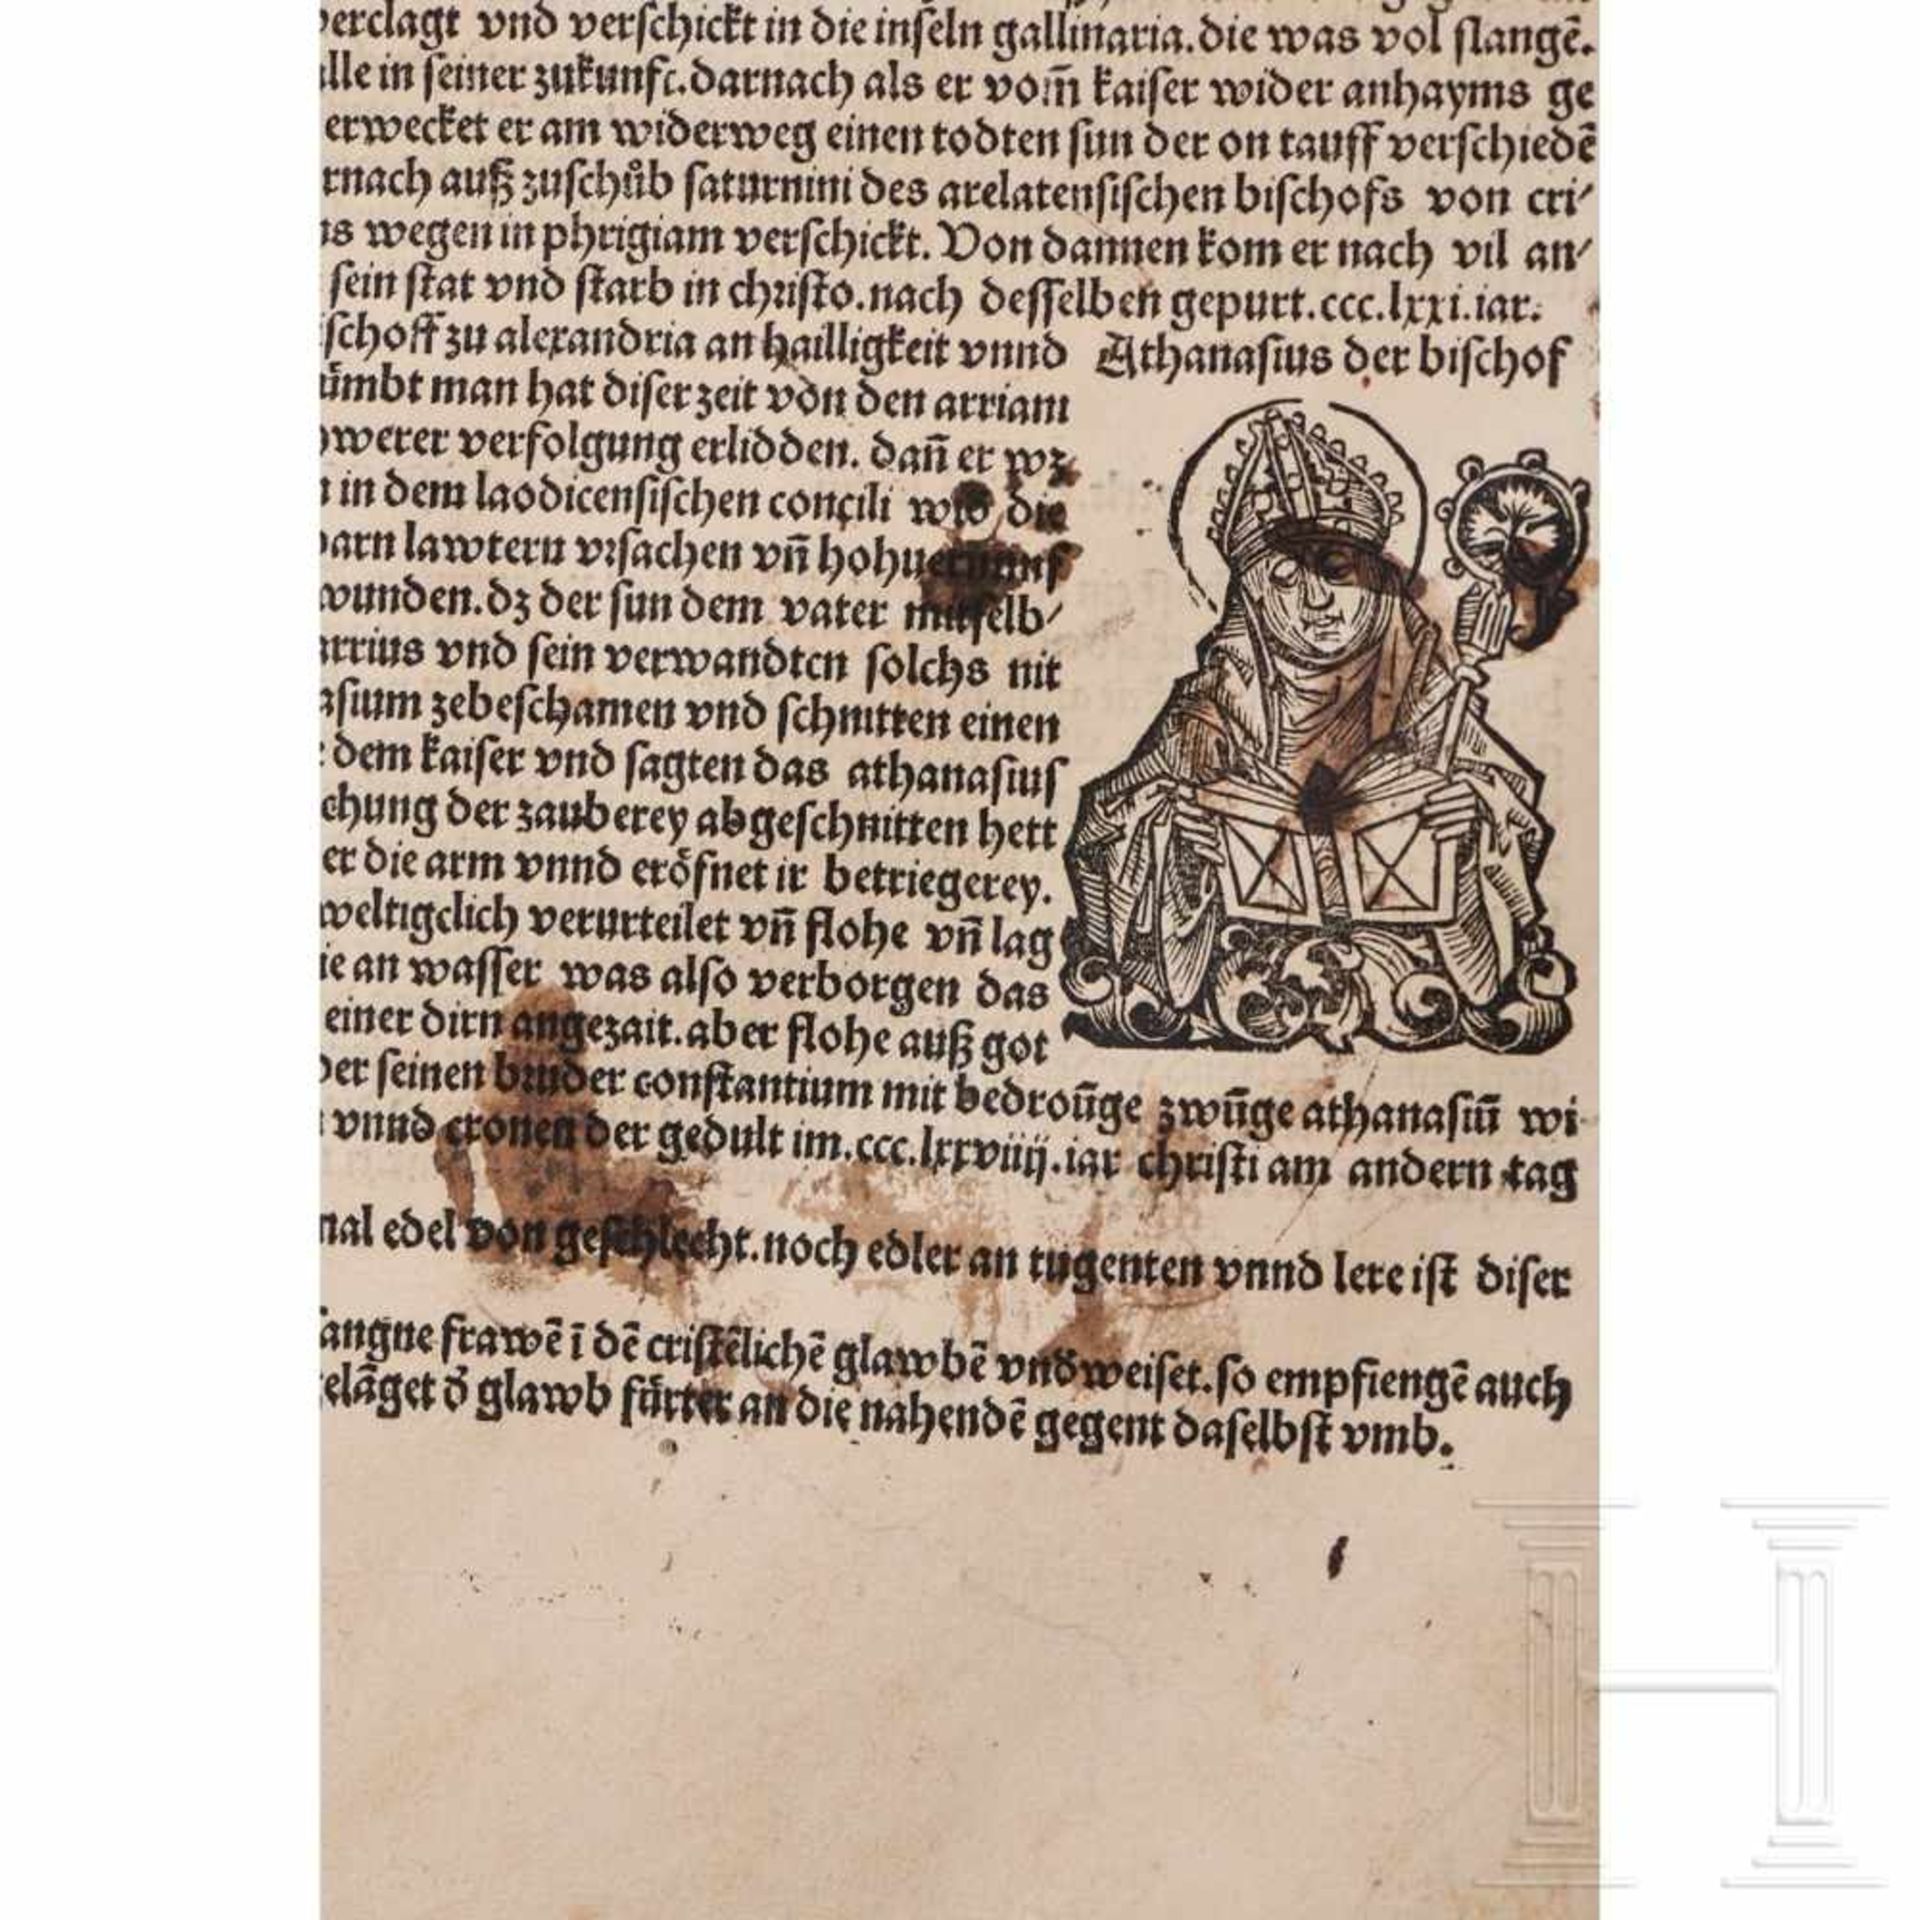 verclagt vnd verſchickt in die inſeln gallinaria.die was vol ſlangē.
alle in ſeiner zukunft.darnach als er vom̄ kaiſer wider anhayms ge
erwecket er am widerweg einen todten ſun der on tauff verſchiedē
rnach auß zuſchůb ſaturnini des arelatenſiſchen biſchofs von cri⸗
ns wegen in phrigiam verſchickt. Von dannen kom er nach vil an⸗
ſein ſtat vnd ſtarb in chriſto.nach deſſelben gepurt.ccc.lxxi.iar.
iſchoff zu alexandria an hailligkeit vnnd
Athanaſius der biſchof
ümbt man hat diſer zeit von den arriani
hwerer verfolgung erlidden. dañ er wz
n in dem laodicenſiſchen concili wið die
parn lawtern vrſachen vñ hohuernuns
wunden.dz der ſun dem vater mitſelb⸗
arrius vnd ſein verwandten ſolchs nit
aſium zebeſchamen vnd ſchnitten einen
dem kaiſer vnd ſagten das athanaſius
chung der zauberey abgeſchnitten hett
er die arm vnnd eröfnet ir betriegerey.
weltigclich verurteilet vñ flohe vñ lag
ie an waſſer was alſo verborgen das
einer dirn angezait.aber flohe auß got
der ſeinen bruder conſtantium mit bedroūge zwūge athanaſiū wi
vnnd cronen der gedult im.ccc.lxxviiij.iar chriſti am andern tag
mal edel von geſchlecht.noch edler an tugenten vnnd lere iſt diſer
fangne frawē ī dē criſtēlichē glawbē vnðweiſet.ſo empfiengē auch
gelāget ð glawb fürter an die nahendē gegent daſelbſt vmb.